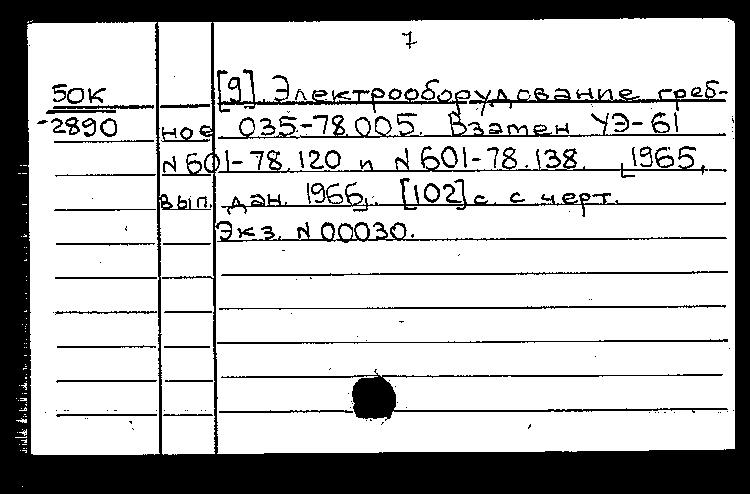 7
50К [9] Электрооборудование греб-
-2890 ное 035-78.005. Взамен УЭ-61
N 601-78.120 и N 601-78.138. [1965,
вып. дан. 1966]. [102] с. с черт.
Экз. N 00030.